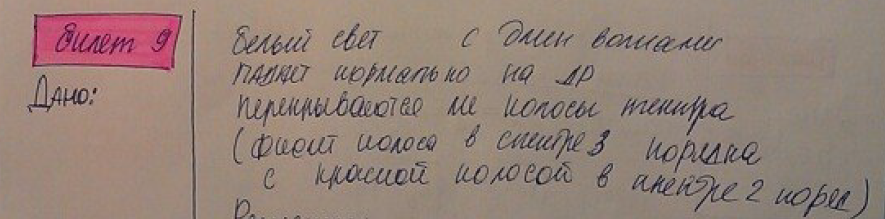 Билет 9
Дано:
Белый свет с длин волнами
падает нормально на ДР
перекрываются ли полосы спектра
(фиолет полоса в спектре 3 порядка
с красной полосой в спектре 2 поряд)